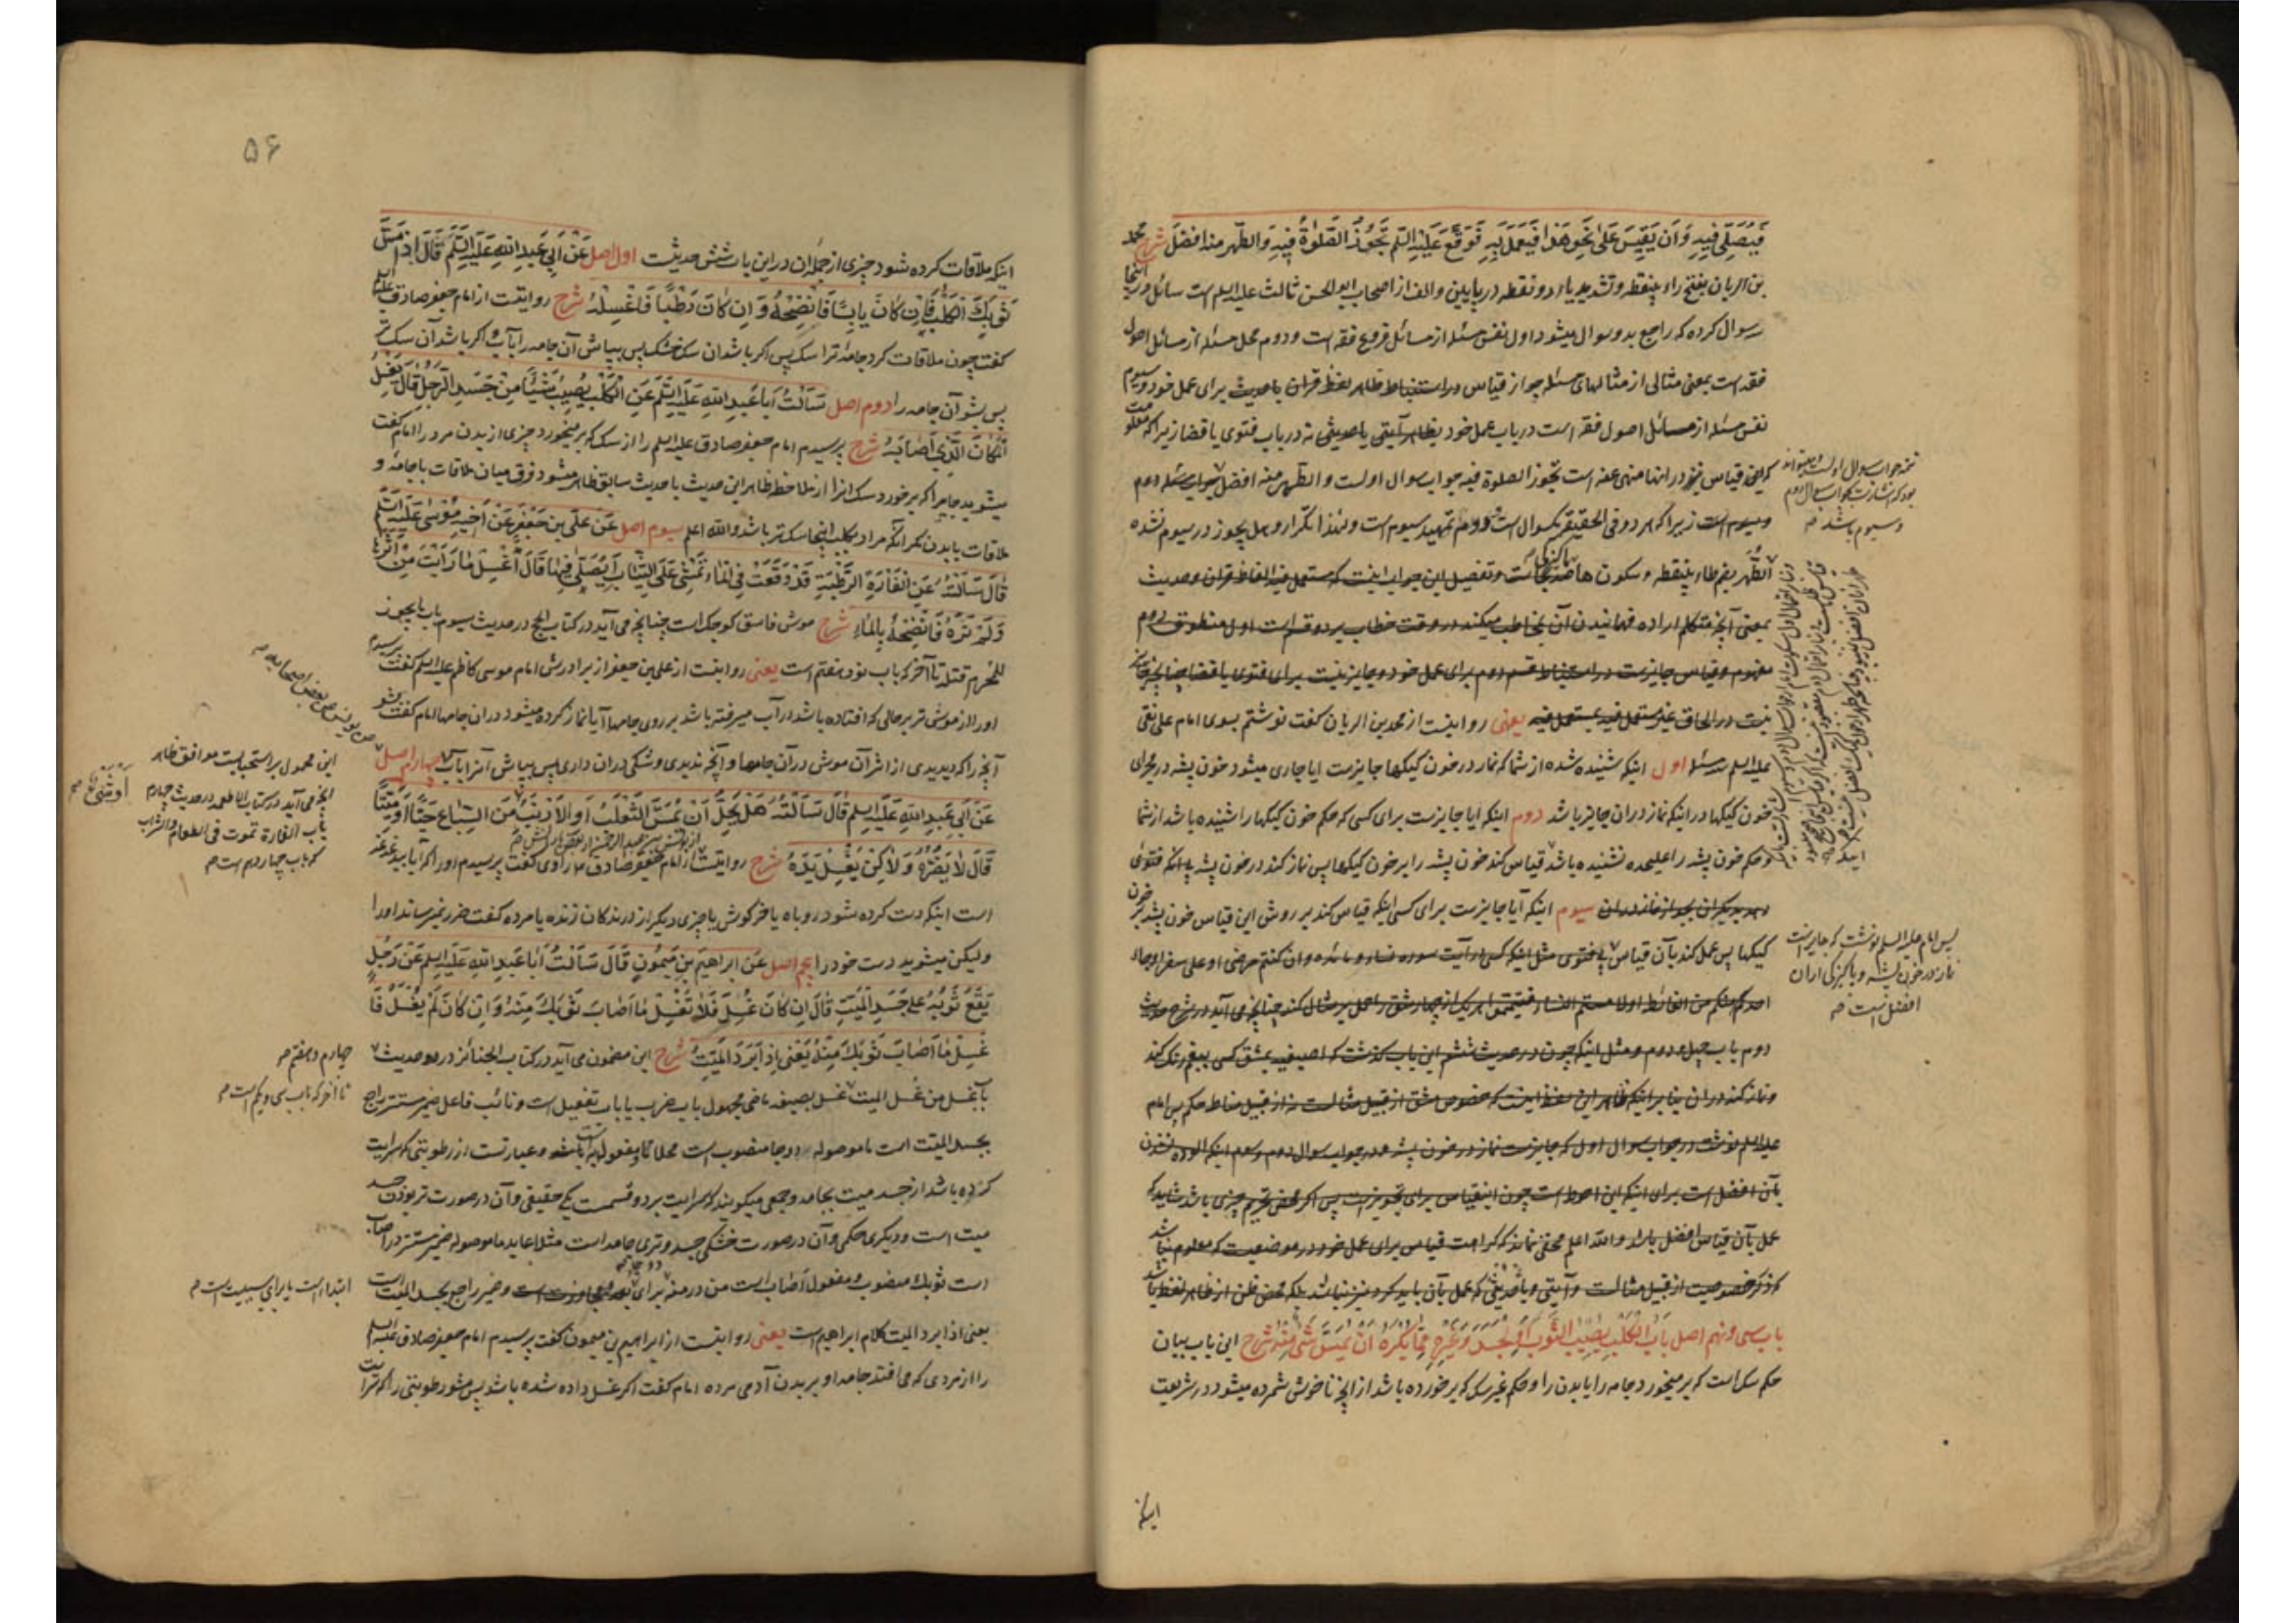 فَيُصَلِّيَ فِيهِ وَاَن يَقِيسَ عَلىٰ نَحْوِ هٰذا فَيَعْمَلَ بِهِ فَوَقَّعَ عَلَيْهِ السَّلم تَجُوزُ الصَّلوٰةُ فِيهِ وَالطُّهر منه افضلُ شرح محمد
بن الریان بفتح راء بینقطه و تشدید یاء دو نقطه در پایین و الف از اصحاب ابو الحسن ثالث علیه السلم است سائل در اینجا
سوال کرده که راجع بدو سوال میشود اول نفس مسئله از مسائل فروع فقه است و دوم محل مسئله از مسائل اصول
فقه است بمعنی مثالی از مثالهای مسئله جواز قیاس و استنباط ظاهر لفظ قران یا حدیث برای عمل خود و سیوم
نفس مسئله از مسائل اصول فقه است در باب عمل خود بظاهر آیتی یا حدیثی نه در باب فتوی یا قضا زیرا که معلومست
که این قیاس در انها منهی عنه است تجوز الصلوة فیه جواب سوال اولست و الطهر منه افضل جواب سوال دوم
و سیوم است زیرا که هر دو فی الحقیقة یکسوال است و دوم تمهید سیوم است و لهذا تکرار و هل یجوز در سیوم نشده
الطُّهر بضم طاء بینقطه و سکون ها پاکیزگی است و تفصیل این جواب اینست که مستعمل فیه الفاظ قران و حدیث
بمعنی آنچه متکلم اراده فهمانیدن آن بمخاطب میکند در وقت خطاب بر دو قسم است اول منطوق دوم
مفهوم و قیاس جایزست در استنباط قسم دوم برای عمل خود و جایز نیست برای فتوی یا قضا چنانچه جایز
نیست در الحاق غیر مستعمل فیه بمستعمل فیه یعنی روایتست از محمد بن الریان گفت نوشتم بسوی امام علی نقی
علیه السلم سه مسئله اول اینکه شنیده شده از شما که نماز در خون کیکها جایزست ایا جاری میشود خون پشه در مجرای
خون کیکها در اینکه نماز دران جایز باشد دوم اینکه ایا جایزست برای کسی که حکم خون کیکها را شنیده باشد از شما
و حکم خون پشه را علیحده نشنیده باشد قیاس کند خون پشه را بر خون کیکها پس نماز کند در خون پشه بی انکه فتوی
دهد دیگران بجواز نماز دران سیوم اینکه آیا جایزست برای کسی اینکه قیاس کند بر روش این قیاس خون پشه بر خون
کیکها پس عمل کند بآن قیاس بی فتوی مثل اینکه کسی از آیت سوره نساء و مائده وان کنتم مرضی او علی سفر او جاء
احد منکم من الغائط اولا مستم النساء فتیمموا هر یک از چهار شق را حمل بر مثال کند چنانچه می آید در شرح حدیث
دوم باب چهل و دوم و مثل اینکه چون در حدیث ششم این باب گذشت که اصبغیه بمشق کسی بغیر رنک کند
و نماز کند دران بنا بر اینکه ظاهر این لفظ اینست که خصوص مشق از قبیل مثالست نه از قبیل مناط حکم پس امام
علیه السلم نوشت در جواب سوال اول که جایزست نماز در خون پشه و در جواب سوال دوم و سیوم اینکه الوده نشدن
بآن افضل است برای اینکه این احوط است چون اینقیاس برای تجویزست پس اگر محض تحریم چیزی باشد شاید که
عمل بآن قیاس افضل باشد و الله اعلم مخفی نماند که کراهت قیاس برای عمل خود در موضعیست که معلوم نباشد
که ذکر خصوصیت از قبیل مثالست و آیتی و یا حدیثی که عمل بآن باید کرد نیز نباشد بلکه محض ظن از ظاهر لفظ باشد
باب سی و نهم اصل بَابُ الْكَلْبِ يُصِيبُ الثَّوْبَ اَوِ الْجَسَدَ وَغَيْرِهِ مِمَّا يُكْرَهُ اَنْ يُمَسَّ شَيْءٌ مِنْهُ شرح این باب بیان
حکم سک است که بر میخورد جامه را یا بدن را و حکم غیر سک که بر خورده باشد از انچه ناخوش شمرده میشود در شریعت
اینکه
تجوز جواب سوال اولست و میتواند
بود که اشارت بجواب سوال دوم
و سیوم باشد صح
پس امام علیه السلم نوشت که جایز است
نماز در خون پشه و پاکیزگی از ان
افضل است صح
۵۶
اینکه ملاقات کرده شود چیزی از جمله ان در این باب شش حدیث اول اصل عَنْ اَبِي عَبدِ اللهِ عَلَيْهِ السَّلم قَالَ اِذا مَسَّ
ثَوْبَكَ الْكَلْبُ فَاِن كٰانَ يابِسًا فَانْضِحْهُ وَ اِن كٰانَ رَطْبًا فَاغْسِلْهُ شرح روایتست از امام جعفر صادق علیه السلم
گفت چون ملاقات کرد جامهٔ ترا سک پس اکر باشد ان سک خشک پس بپاش آن جامه را بآب و اکر باشد آن سک تر
پس بشو آن جامه را دوم اصل سَاَلْتُ اَبا عَبدِ اللهِ عَلَيْهِ السَّلم عَنِ الْكَلْبِ يُصِيبُ شَيْئًا مِنْ جَسَدِ الرَّجُلِ قَالَ يَغْسِلُ
الْمَكٰانَ الَّذِي اَصٰابَهُ شرح پرسیدم امام جعفر صادق علیه السلم را از سک که بر میخورد چیزی از بدن مرد را امام گفت
میشوید جایی را که بر خورد سک انرا از ملاحظه ظاهر این حدیث با حدیث سابق ظاهر میشود فرق میان ملاقات با جامه و
ملاقات با بدن مکر آنکه مراد بکلب اینجا سک تر باشد و الله اعلم سیوم اصل عَن عَلیّ بن جَعْفَرٍ عَنْ اَخِيهِ مُوسىٰ عَلَيْهِ السَّلم
قٰالَ سَاَلْتُهُ عَنِ الْفَارَةِ الرَّطْبَةِ قَدْ وَقَعَتْ فِي الْمٰاءِ تَمْشِي عَلَى الثِّيٰابِ اَيُصَلّىٰ فِيهٰا قَالَ اغْسِلْ مٰا رَاَيْتَ مِنْ اَثَرِهٰا
وَلَمْ تَرَهُ فَانْضِحْهُ بِالْمٰاءِ شرح موش فاسق کوچک است چنانچه می آید در کتاب الحج در حدیث سیوم باب ما یجوز
للمحرم قتله تا آخر که باب نود هفتم است یعنی روایتست از علی بن جعفر از برادرش امام موسی کاظم علیه السلم گفت پرسیدم
او را از موش تر بر حالی که افتاده باشد در آب میرفته باشد بر روی جامها آیا نماز کرده میشود دران جامها امام گفت بشو
آنچه را که دیدی از اثر آن موش در آن جامها و آنچه ندیدی و شکی دران داری پس بپاش آنرا بآب چهارم اصل
عَنْ اَبي عَبدِ اللهِ عَلَيْهِ السلم قٰالَ سَاَلْتُهُ هَلْ يَحِلُّ اَنْ يُمَسَّ الثَّعْلَبُ اَوِ الْاَرْنَبُ مِنَ السِّباعِ حَيًّا اَوْ مَيِّتًا
قَالَ لٰا يَضُرُّهُ وَلٰكِنْ يَغْسِلُ يَدَهُ شرح روایتست از امام جعفر صادق ع راوی گفت پرسیدم او را که آیا بیدغدغه
است اینکه دست کرده شود روباه یا خرکوش یا چیزی دیکر از درندکان زنده یا مرده گفت ضرر نمیرساند او را
ولیکن میشوید دست خود را پنجم اصل عَن ابراهیمَ بنِ مَيْمُونٍ قَالَ سَاَلْتُ اَبا عَبدِ اللهِ عَلَيْهِ السلم عَنْ رَجُلٍ
يَقَعُ ثَوْبُهُ عَلىٰ جَسَدِ الْمَيِّتِ قَالَ اِن كٰانَ غُسِّلَ فَلٰا تَغْسِلْ مٰا اَصٰابَ ثَوْبَكَ مِنْهُ وَ اِن كٰانَ لَمْ يُغْسَّلْ فَا
غْسِلْ مٰا اَصٰابَ ثَوْبَكَ مِنْهُ يَعْنِي اِذٰا بَرَدَ الْمَيِّتُ شرح این مضمون می آید در کتاب الجنائز در دو حدیث
باب غسل من غسل المیت غسل بصیغه ماضی مجهول باب ضرب یا باب تفعیل است و نائب فاعل ضمیر مستتر راجع
بجسد المیت است ما موصوله در دو جا منصوب است محلا تا مفعول به باشد و عبارتست از رطوبتی که سرایت
کرده باشد از جسد میت بجامه و جمعی میکویند که سرایت بر دو قسمت یکی حقیقی و آن در صورت تر بودن جسد
میت است و دیکری حکمی و آن در صورت خشکی جسد و تری جامه است مثلا عاید ما موصوله ضمیر مستتر در اصاب
است ثوبک منصوب و مفعول اصاب است من در منه برای و ضمیر راجع بجسد المیت است
یعنی اذا برد المیت کلام ابراهیم است یعنی روایتست از ابراهیم بن میمون گفت پرسیدم امام جعفر صادق علیه السلم
را از مردی که می افتد جامه او بر بدن آدمی مرده امام گفت اکر غسل داده شده باشد پس مشو رطوبتی را که سرایت
این محمول بر استحبابست موافق ظاهر
انچه می آید در کتاب الاطعمه در حدیث چهارم
باب الفارة تموت فی الطعام و الشراب
که باب چهاردهم است صح
چهارم و هفتم صح
تا آخر که باب سی و یکم است صح
ابتدا است یا برای سببیت است صح